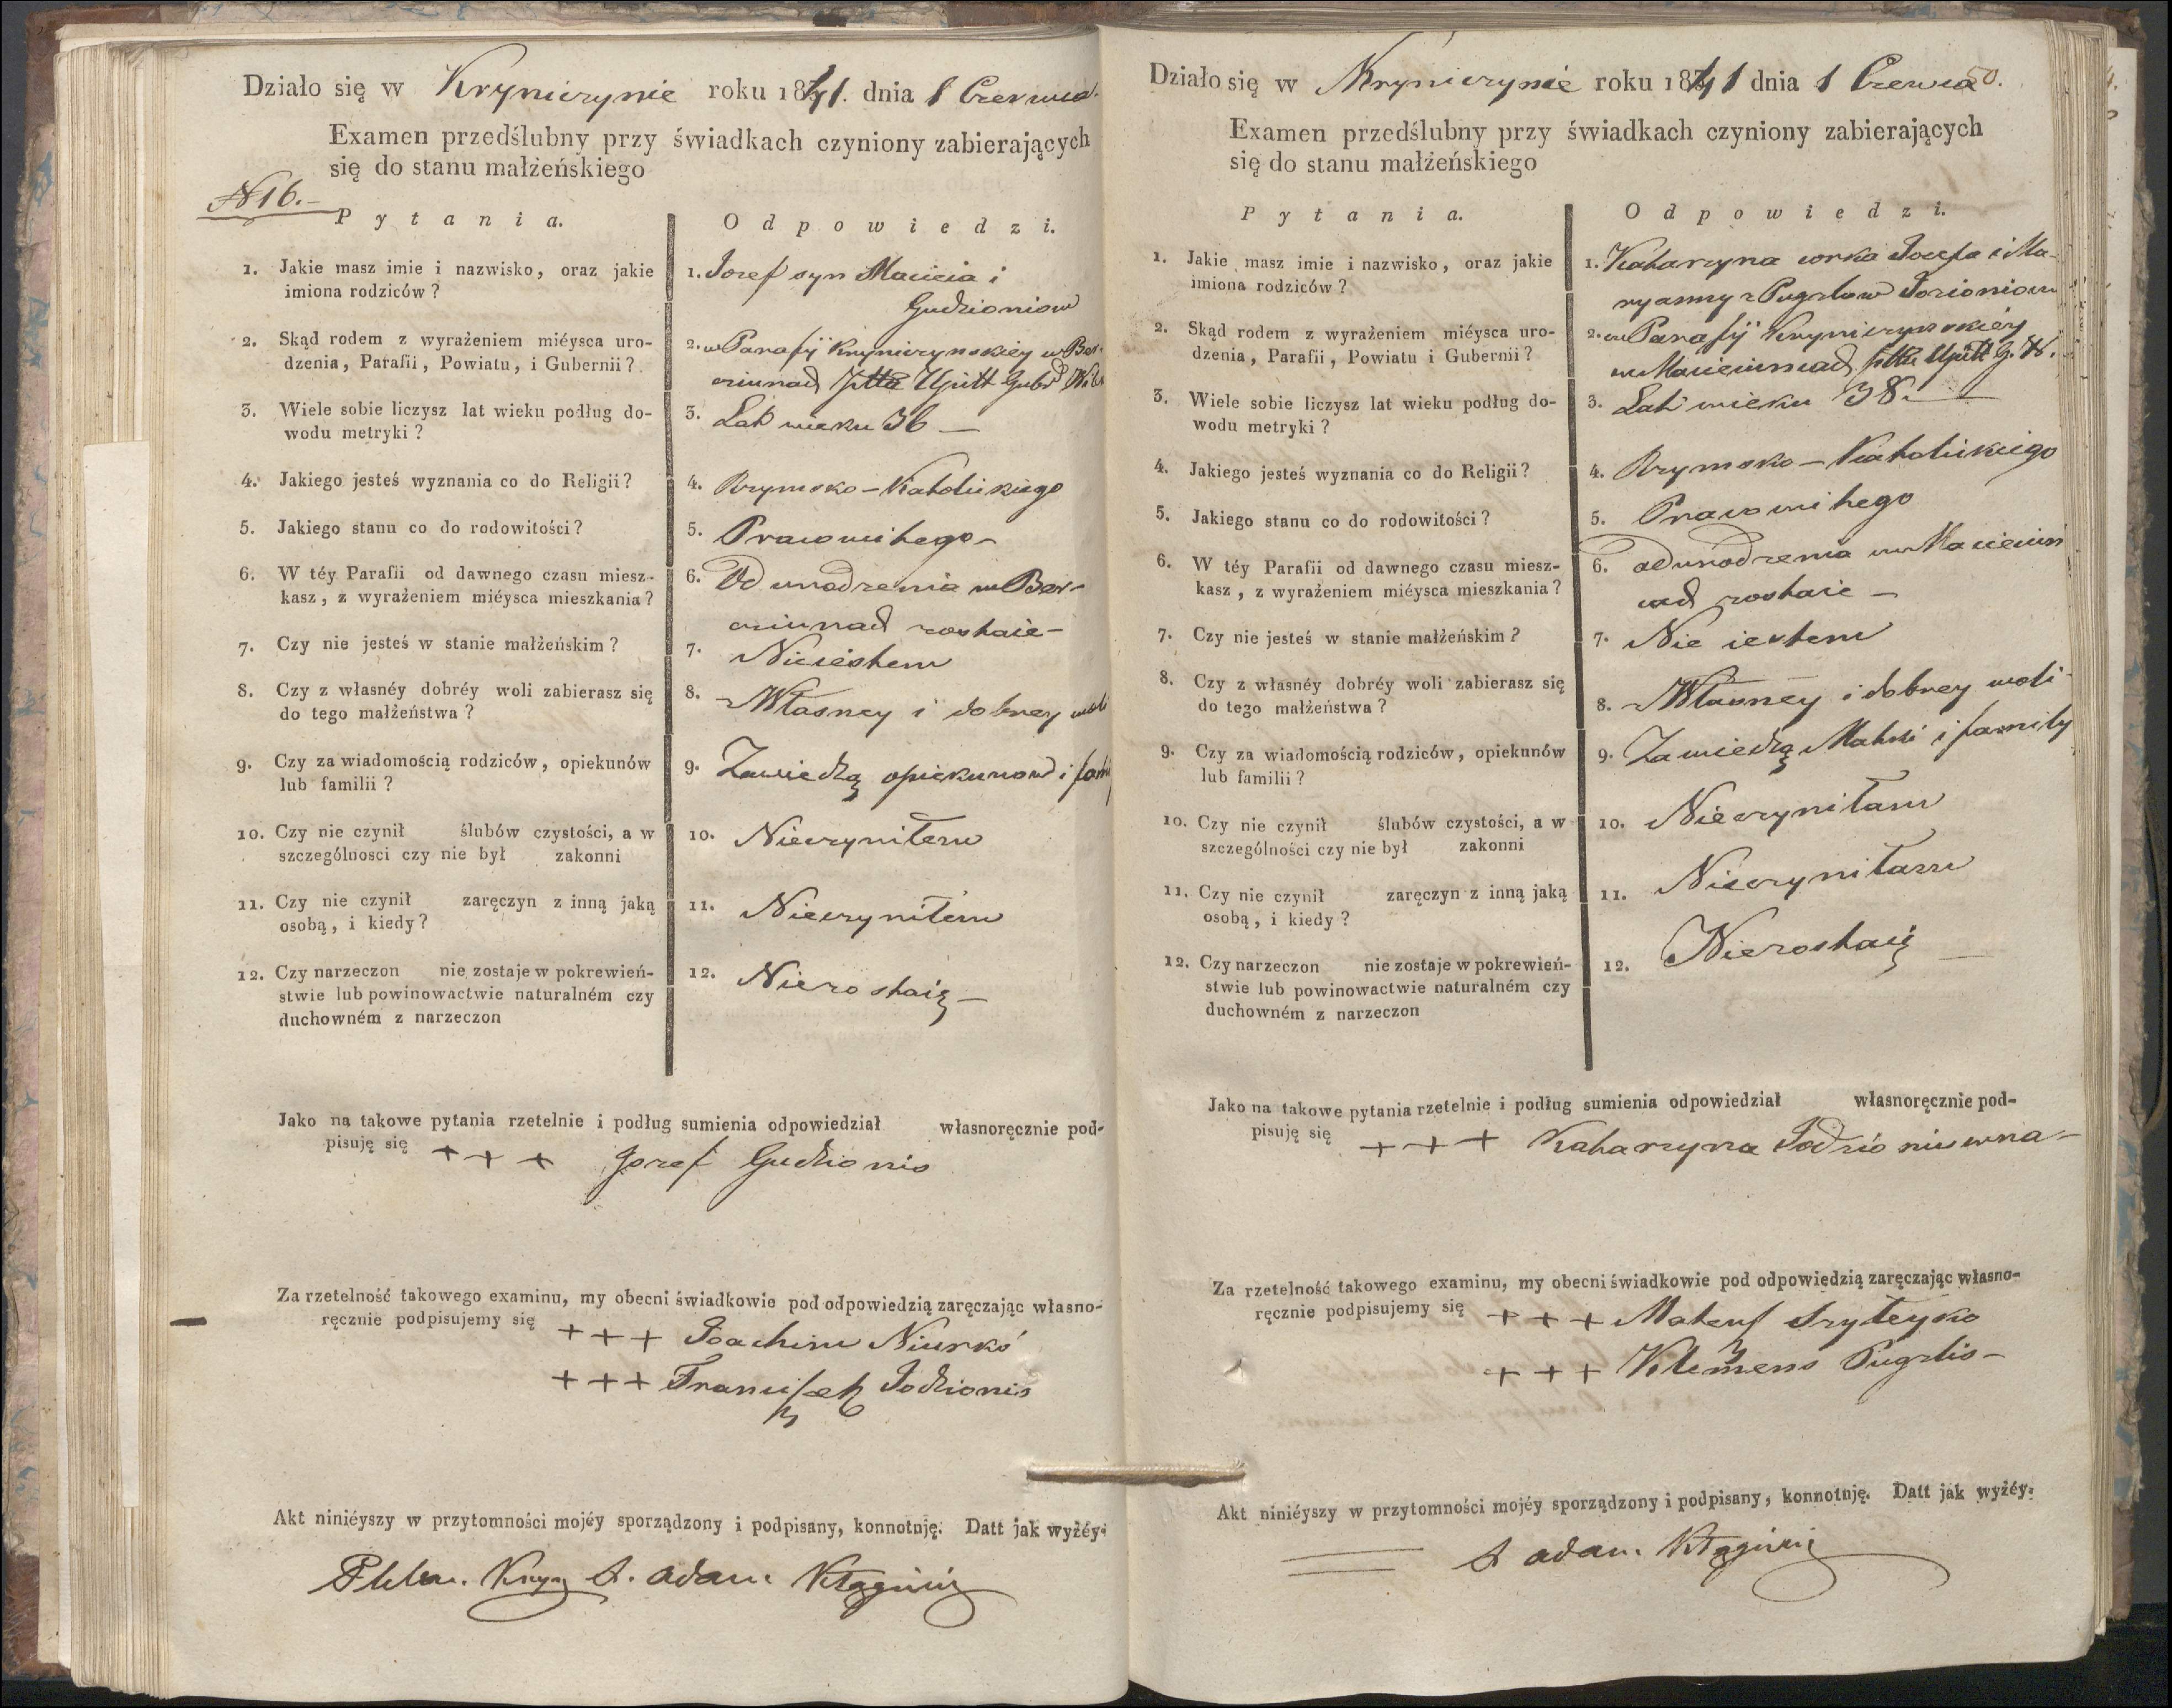 Działo się w Kryniczynie roku 1841. dnia 1 Czerwca.
Examen przedślubny przy świadkach czyniony zabierających
się do stanu małżeńskiego
N 16.
Pytania.
Odpowiedzi.
1. Jakie masz imie i nazwisko, oraz jakie
imiona rodziców?
1. Jozef syn Macieia i
Gudzioniow
2. Skąd rodem z wyrażeniem miéysca uro-
dzenia, Parafii, Powiatu, i Gubernii?
2. w Parafij Kryniczynskiey w
Pttu Upitt Gubr
3. Wiele sobie liczysz lat wieku podług do-
wodu metryki?
3. Lat wieku 36 —
4. Jakiego jesteś wyznania co do Religii?
4. Rzymsko-Katolickiego
5. Jakiego stanu co do rodowitości?
5. Prawowitego-
6. W téy Parafii od dawnego czasu miesz-
kasz, z wyrażeniem miéysca mieszkania?
6. Od urodzenia w
zostaie-
7. Czy nie jesteś w stanie małżeńskim?
7. Nieiestem
8. Czy z własnéy dobréy woli zabierasz się
do tego małżeństwa?
8. z Własney i dobrey woli
9. Czy za wiadomością rodziców, opiekunów
lub familii?
9. Zawiedzą opiekunow i
10. Czy nie czynił ślubów czystości, a w
szczególnosci czy nie był zakonni
10. Nieczyniłem
11. Czy nie czynił zaręczyn z inną jaką
osobą, i kiedy?
11. Nieczyniłem
12. Czy narzeczon nie zostaje w pokrewień-
stwie lub powinowactwie naturalném czy
duchowném z narzeczon
12. Niezostaię —
Jako na takowe pytania rzetelnie i podług sumienia odpowiedział własnoręcznie pod-
pisuję się + + + Jozef Gudzionis
Za rzetelność takowego examinu, my obecni świadkowie pod odpowiedzią zaręczając własno-
ręcznie podpisujemy się + + + Joachim Niurko
+ + + Franciszek Jodzionis
Akt niniéyszy w przytomności mojéy sporządzony i podpisany, konnotuję. Datt jak wyżéy.
Adam
Działo się w Kryniczynie roku 1841 dnia 1 Czerwca
50.
Examen przedślubny przy świadkach czyniony zabierających
się do stanu małżeńskiego
Pytania.
Odpowiedzi.
1. Jakie masz imie i nazwisko, oraz jakie
imiona rodziców?
1. Katarzyna corka Jozefa i Ma-
ryanny z Pugzlow
2. Skąd rodem z wyrażeniem miéysca uro-
dzenia, Parafii, Powiatu i Gubernii?
2. w Parafij Kryniczynskiey
Pttu Upitt G. W.
3. Wiele sobie liczysz lat wieku podług do-
wodu metryki?
3. Lat wieku 38. —
4. Jakiego jesteś wyznania co do Religii?
4. Rzymsko-Katolickiego
5. Jakiego stanu co do rodowitości?
5. Prawowitego
6. W téy Parafii od dawnego czasu miesz-
kasz, z wyrażeniem miéysca mieszkania?
6. od urodzenia w
zostaie —
7. Czy nie jesteś w stanie małżeńskim?
7. Nie iestem
8. Czy z własnéy dobréy woli zabierasz się
do tego małżeństwa?
8. z Własney i dobrey woli
9. Czy za wiadomością rodziców, opiekunów
lub familii?
9. Zawiedzą Matki i familij
10. Czy nie czynił ślubów czystości, a w
szczególności czy nie był zakonni
10. Nieczyniłam
11. Czy nie czynił zaręczyn z inną jaką
osobą, i kiedy?
11. Nieczyniłam
12. Czy narzeczon nie zostaje w pokrewień-
stwie lub powinowactwie naturalném czy
duchowném z narzeczon
12. Niezostaię —
Jako na takowe pytania rzetelnie i podług sumienia odpowiedział własnoręcznie pod-
pisuję się + + + Katarzyna Jodzioniuwna-
Za rzetelność takowego examinu, my obecni świadkowie pod odpowiedzią zaręczając własno-
ręcznie podpisujemy się + + + Mateusz
+ + + Klemens Pugzlis-
Akt niniéyszy w przytomności mojéy sporządzony i podpisany, konnotuję. Datt jak wyżéy.
Adam